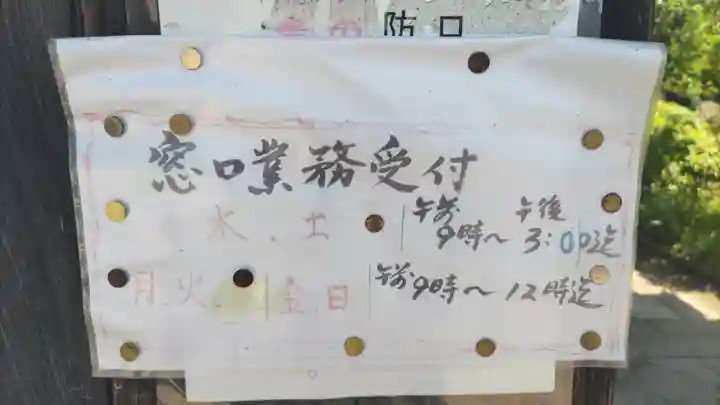 防口
窓口業務受付
水.土 午前9時〜午後3:00迄
月 火 金 日 午前9時〜12時迄